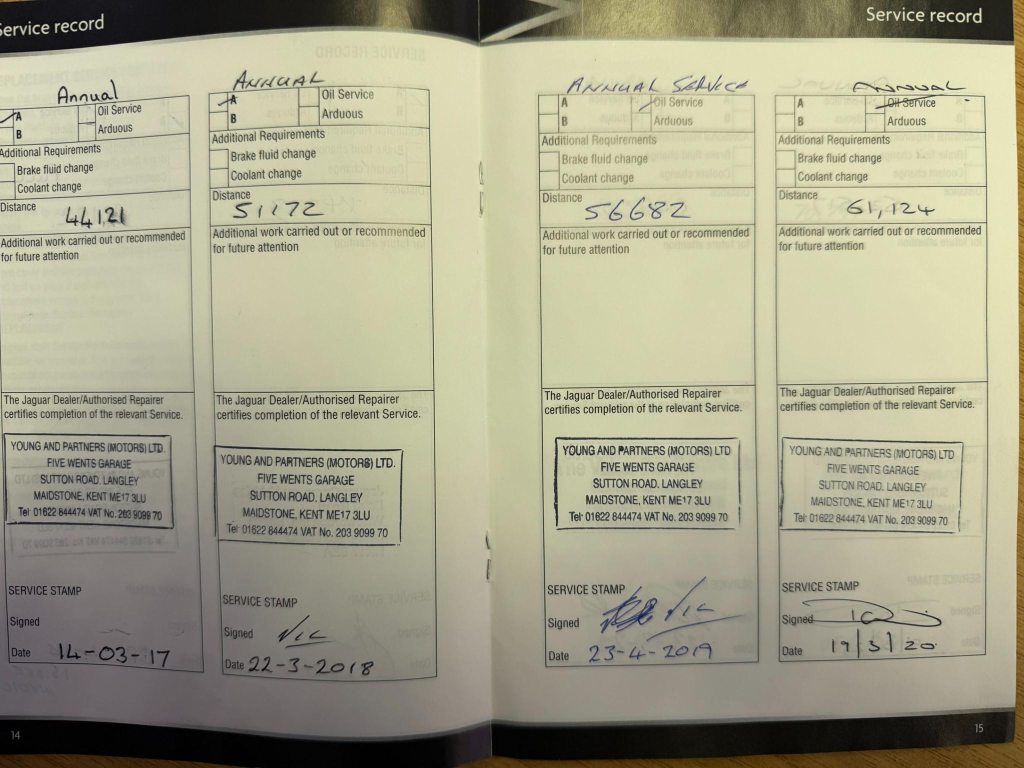 Service record
Annual
A
B
Oil Service
Arduous
Additional Requirements
Brake fluid change
Coolant change
Distance
44,121
Additional work carried out or recommended
for future attention
The Jaguar Dealer/Authorised Repairer
certifies completion of the relevant Service.
YOUNG AND PARTNERS (MOTORS) LTD.
FIVE WENTS GARAGE
SUTTON ROAD, LANGLEY
MAIDSTONE, KENT ME17 3LU
Tel: 01622 844474 VAT No. 203 9099 70
SERVICE STAMP
Signed
Date 14-03-17
14
ANNUAL
A
B
Oil Service
Arduous
Additional Requirements
Brake fluid change
Coolant change
Distance
51172
Additional work carried out or recommended
for future attention
The Jaguar Dealer/Authorised Repairer
certifies completion of the relevant Service.
YOUNG AND PARTNERS (MOTORS) LTD.
FIVE WENTS GARAGE
SUTTON ROAD, LANGLEY
MAIDSTONE, KENT ME17 3LU
Tel: 01622 844474 VAT No. 203 9099 70
SERVICE STAMP
Signed Vic
Date 22-3-2018
Service record
ANNUAL SERVICE
A
B
Oil Service
Arduous
Additional Requirements
Brake fluid change
Coolant change
Distance
56682
Additional work carried out or recommended
for future attention
The Jaguar Dealer/Authorised Repairer
certifies completion of the relevant Service.
YOUNG AND PARTNERS (MOTORS) LTD
FIVE WENTS GARAGE
SUTTON ROAD, LANGLEY
MAIDSTONE, KENT ME17 3LU
Tel: 01622 844474 VAT No. 203 9099 70
SERVICE STAMP
Signed Vic
Date 23-4-2019
ANNUAL
A
B
Oil Service
Arduous
Additional Requirements
Brake fluid change
Coolant change
Distance
61,124
Additional work carried out or recommended
for future attention
The Jaguar Dealer/Authorised Repairer
certifies completion of the relevant Service.
YOUNG AND PARTNERS (MOTORS) LTD.
FIVE WENTS GARAGE
SUTTON ROAD, LANGLEY
MAIDSTONE, KENT ME17 3LU
Tel: 01622 844474 VAT No. 203 9099 70
SERVICE STAMP
Signed
Date 19/3/20
15